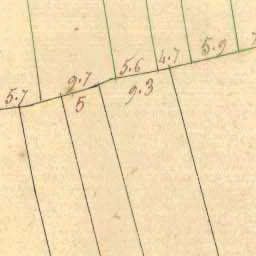 5.7 9.7 5.6 4.7 5.9 7
5 9.3